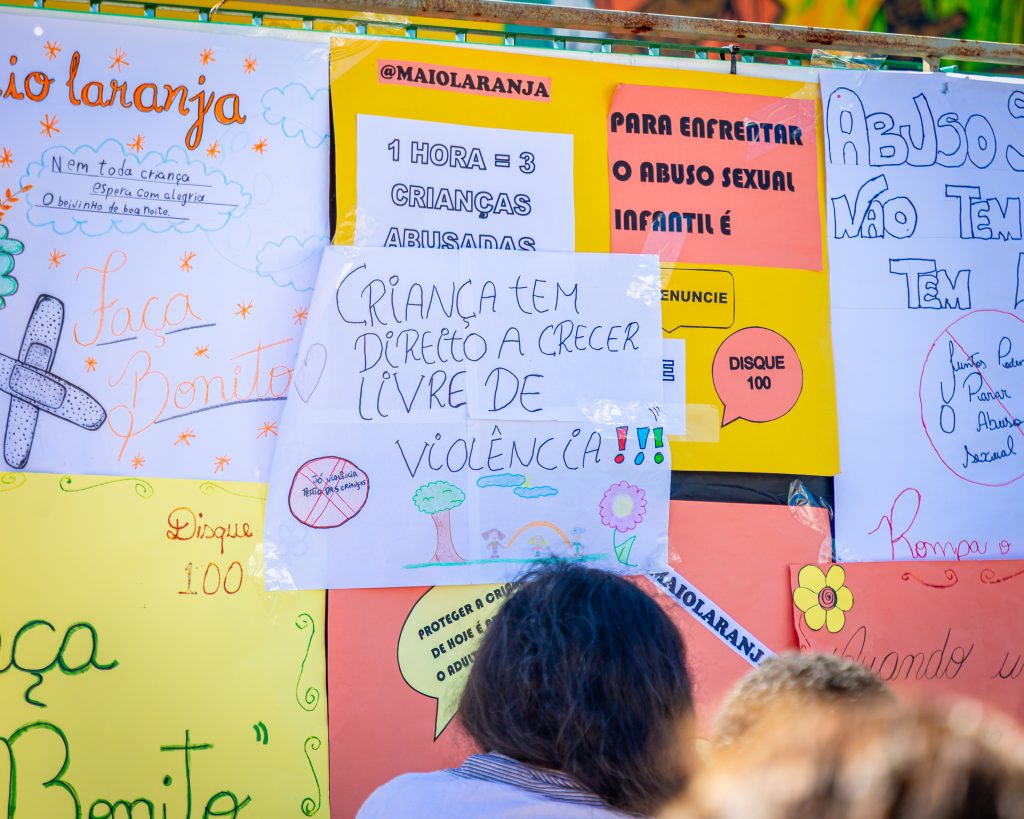 laranja
Nem toda criança
espera com alegria
O beijinho de boa noite.
Faça
Bonito
@MAIOLARANJA
1 HORA = 3
CRIANÇAS
ABUSADAS
PARA ENFRENTAR
O ABUSO SEXUAL
INFANTIL É
ENUNCIE
E
DISQUE
100
CRIANÇA TEM
DIREITO A CRECER
LIVRE DE
VIOLÊNCIA!!!
ABUSO S
NÃO TEM
TEM
Juntos Podem
Parar
O Abuso
sexual
Rompa o
Disque
100
aça
Bonito
PROTEGER A CRIA
DE HOJE É
O ADUL
MAIOLARANJ
Quando u